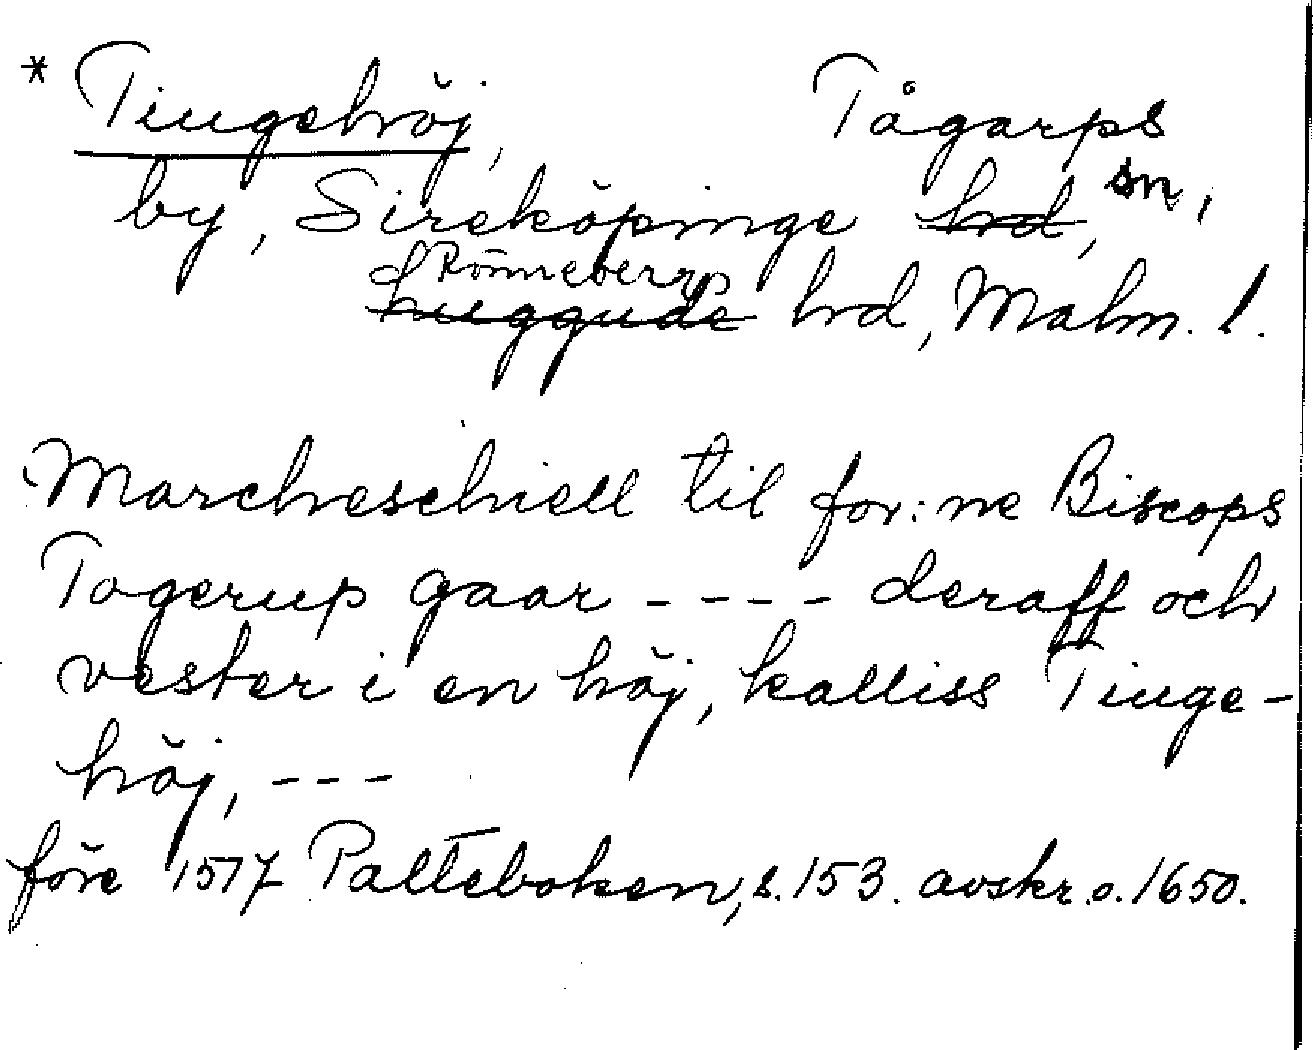 * Tingehöj, Tågarps
by, Sireköpinge hrd, sn,
Rönneberg
Luggude hrd, Malm. l.
Marcheschiell til for:ne Biscops
Togerup gaar - - - - deraff och
vester i en höj, kalliss Tinge-
höj, - - -
före 1517 Palteboken, s. 153. avskr. o. 1650.